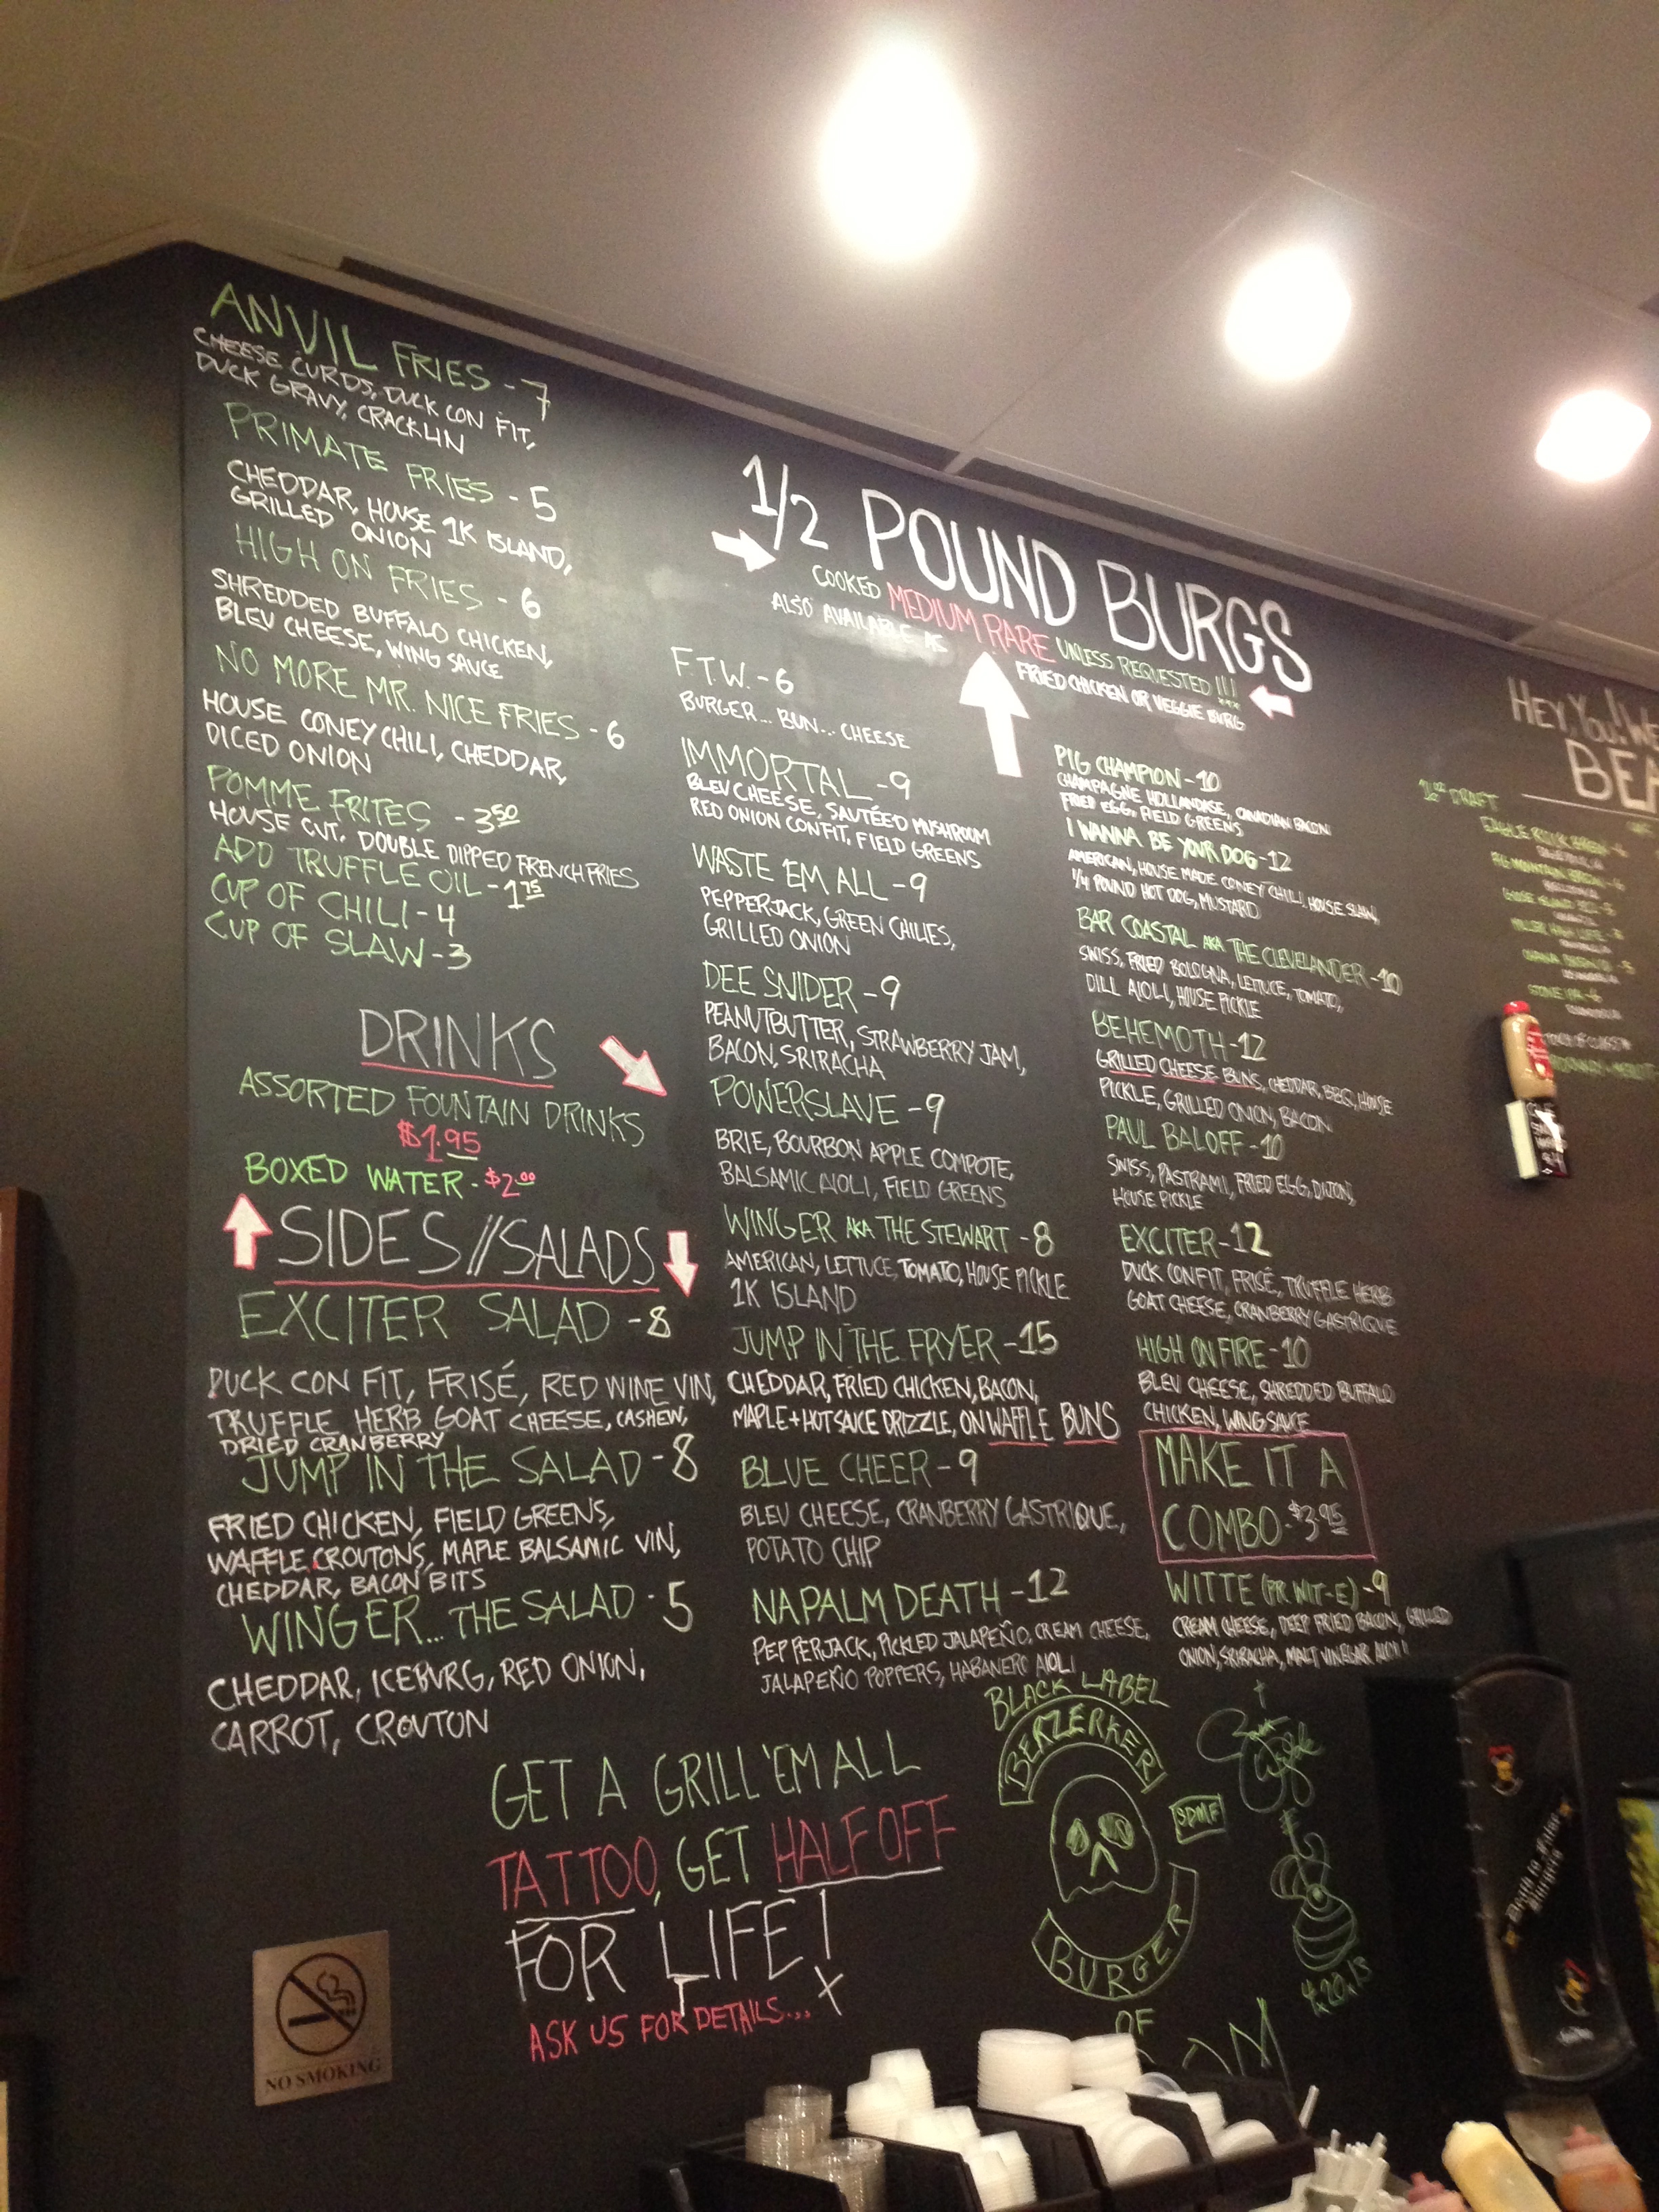 ANVIL FRIES - 7
CHEESE CURDS, DUCK CON FIT,
DUCK GRAVY, CRACKLIN
PRIMATE FRIES - 5
CHEDDAR, HOUSE 1K ISLAND,
GRILLED ONION
HIGH ON FRIES - 6
SHREDDED BUFFALO CHICKEN,
BLEU CHEESE, WING SAUCE
NO MORE MR. NICE FRIES - 6
HOUSE CONEY CHILI, CHEDDAR,
DICED ONION
POMME FRITES - 3.50
HOUSE CUT, DOUBLE DIPPED FRENCH FRIES
ADD TRUFFLE OIL - 1.75
CUP OF CHILI - 4
CUP OF SLAW - 3
DRINKS
ASSORTED FOUNTAIN DRINKS
$1.95
BOXED WATER - $2.00
SIDES//SALADS
EXCITER SALAD - 8
DUCK CON FIT, FRISÉ, RED WINE VIN,
TRUFFLE HERB GOAT CHEESE, CASHEW,
DRIED CRANBERRY
JUMP IN THE SALAD - 8
FRIED CHICKEN, FIELD GREENS,
WAFFLE CROUTONS, MAPLE BALSAMIC VIN,
CHEDDAR, BACON BITS
WINGER... THE SALAD - 5
CHEDDAR, ICEBURG, RED ONION,
CARROT, CROUTON
1/2 POUND BURGS
COOKED MEDIUM RARE UNLESS REQUESTED!!!
ALSO AVAILABLE AS FRIED CHICKEN OR VEGGIE BURG
F.T.W. - 6
BURGER... BUN... CHEESE
IMMORTAL - 9
BLEU CHEESE, SAUTÉED MUSHROOM
RED ONION CONFIT, FIELD GREENS
WASTE 'EM ALL - 9
PEPPERJACK, GREEN CHILIES,
GRILLED ONION
DEE SNIDER - 9
PEANUTBUTTER, STRAWBERRY JAM,
BACON, SRIRACHA
POWERSLAVE - 9
BRIE, BOURBON APPLE COMPOTE,
BALSAMIC AIOLI, FIELD GREENS
WINGER AKA THE STEWART - 8
AMERICAN, LETTUCE, TOMATO, HOUSE PICKLE
1K ISLAND
JUMP IN THE FRYER - 15
CHEDDAR, FRIED CHICKEN, BACON,
MAPLE + HOT SAUCE DRIZZLE, ON WAFFLE BUNS
BLUE CHEER - 9
BLEU CHEESE, CRANBERRY GASTRIQUE,
POTATO CHIP
NAPALM DEATH - 12
PEPPERJACK, PICKLED JALAPEÑO, CREAM CHEESE,
JALAPEÑO POPPERS, HABANERO AIOLI
PIG CHAMPION - 10
CHAMPAGNE HOLLANDAISE, CANADIAN BACON
FRIED EGG, FIELD GREENS
I WANNA BE YOUR DOG - 12
AMERICAN, HOUSE MADE CONEY CHILI, HOUSE SLAW,
1/4 POUND HOT DOG, MUSTARD
BAR COASTAL AKA THE CLEVELANDER - 10
SWISS, FRIED BOLOGNA, LETTUCE, TOMATO,
DILL AIOLI, HOUSE PICKLE
BEHEMOTH - 12
GRILLED CHEESE BUNS, CHEDDAR, BBQ, HOUSE
PICKLE, GRILLED ONION, BACON
PAUL BALOFF - 10
SWISS, PASTRAMI, FRIED EGG, DIJON,
HOUSE PICKLE
EXCITER - 12
DUCK CONFIT, FRISÉ, TRUFFLE HERB
GOAT CHEESE, CRANBERRY GASTRIQUE
HIGH ON FIRE - 10
BLEU CHEESE, SHREDDED BUFFALO
CHICKEN, WING SAUCE
MAKE IT A
COMBO - $3.95
WITTE (PR WIT-E) - 9
CREAM CHEESE, DEEP FRIED BACON, GRILLED
ONION, SRIRACHA, MALT VINEGAR AIOLI
GET A GRILL 'EM ALL
TATTOO, GET HALF OFF
FOR LIFE!
ASK US FOR DETAILS...
BLACK LABEL
BERZERKER
SDMF
BURGER
OF
4.20.13
NO SMOKING
HEY, YOU! WE
BEE
DRAFT